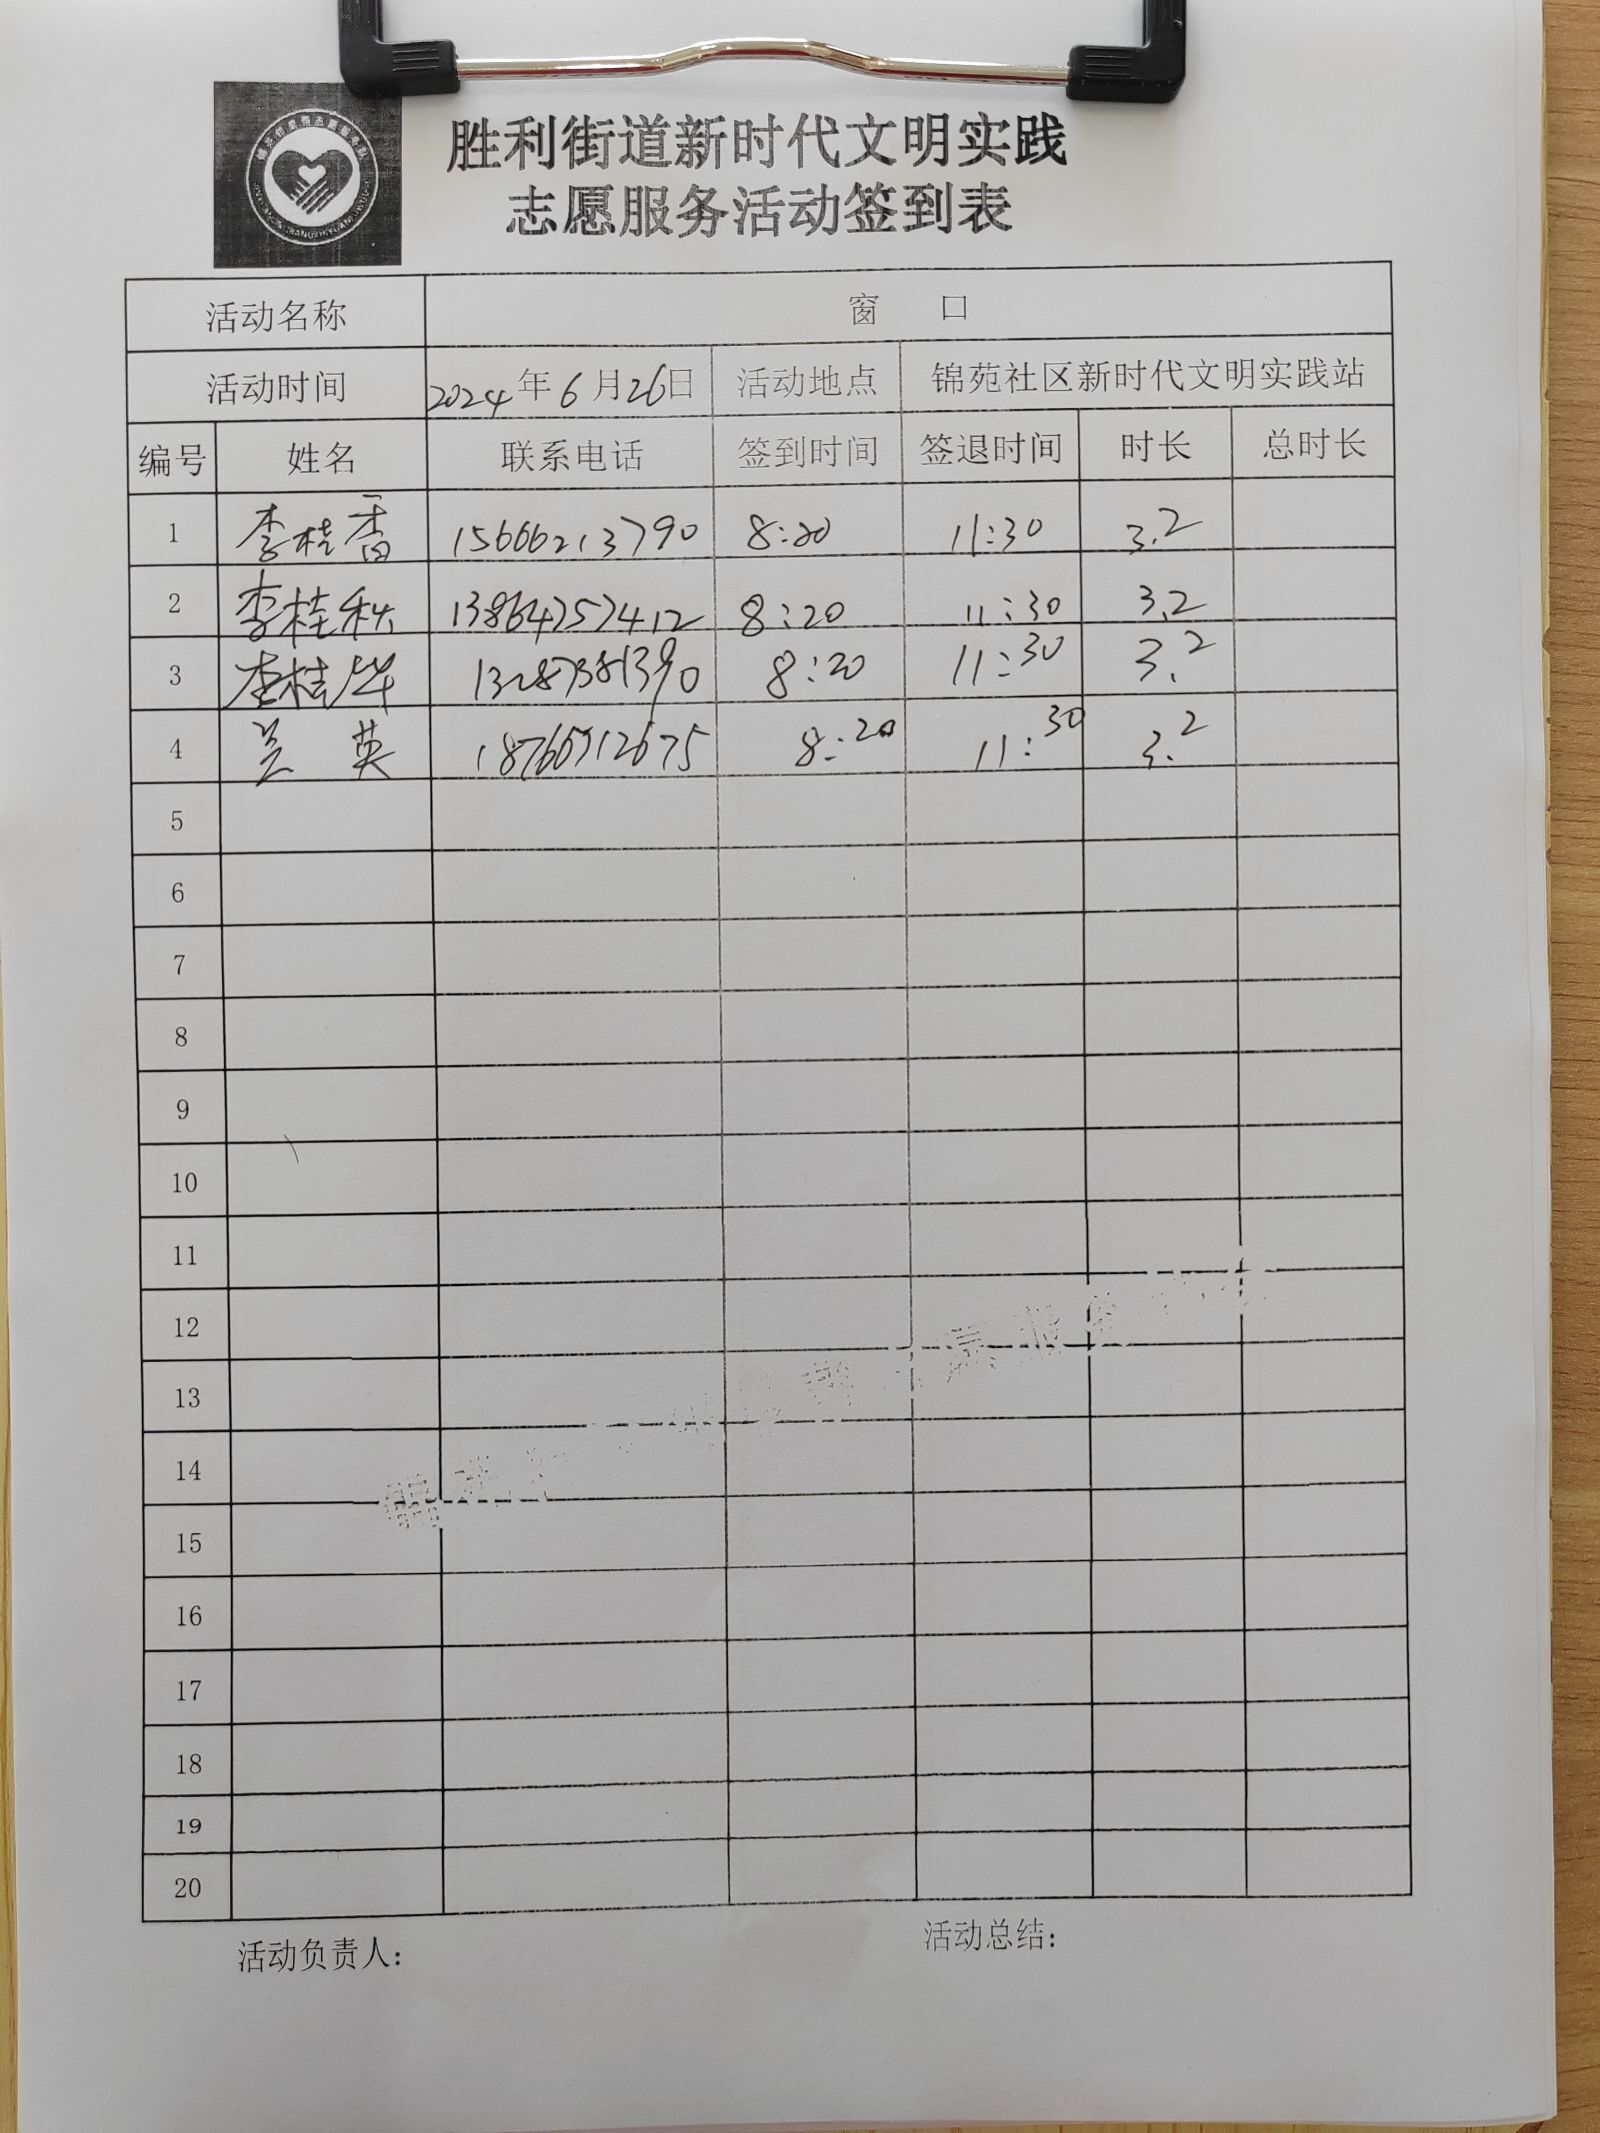 胜利街道新时代文明实践
志愿服务活动签到表
活动名称 窗 口
活动时间 2024年6月26日 活动地点 锦苑社区新时代文明实践站
编号 姓名 联系电话 签到时间 签退时间 时长 总时长
1 李桂香 15666213790 8:20 11:30 3.2
2 李桂秋 13864757412 8:20 11:30 3.2
3 李桂华 13287381390 8:20 11:30 3.2
4 兰 英 18766712675 8:20 11:30 3.2
5
6
7
8
9
10
11
12
13
14
15
16
17
18
19
20
活动负责人: 活动总结: